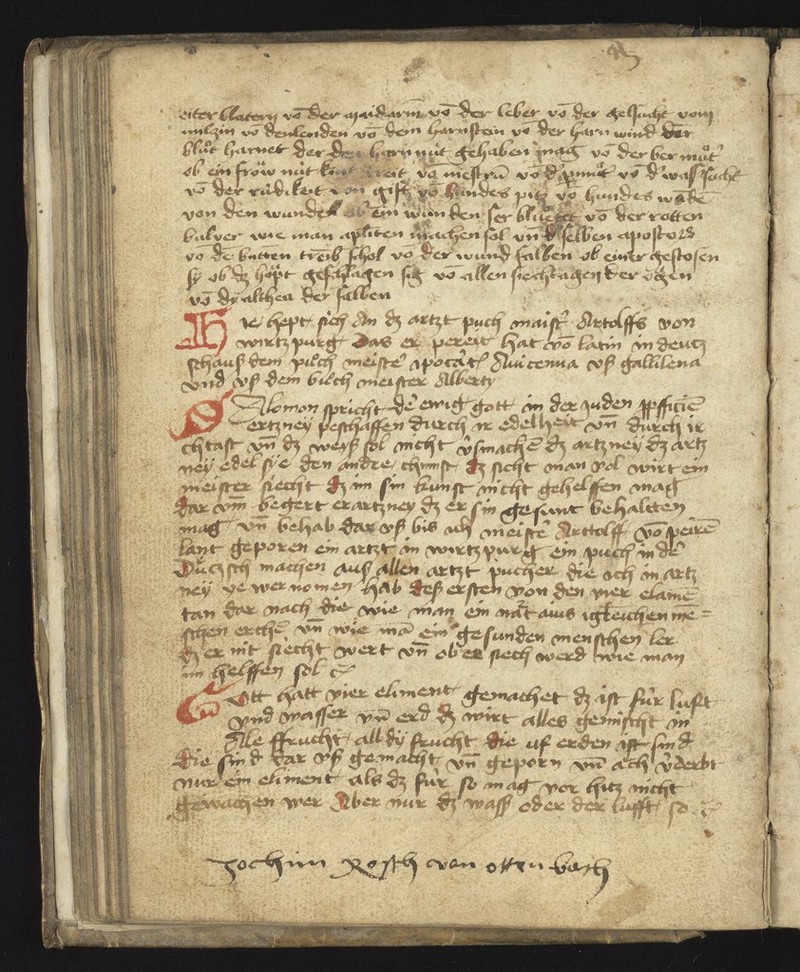 eiter blatern vō der maidarm vō der leber vō der gelsucht vom
milzin vō denlenden vō dem harnstein vō der harn wind der
blůt harnet der den harn nüt gehaben mag vō der ber můt
ob ein fröw nüt treit vō menstrū vō d vō d wassersucht
vō der rüdikeit von gift vō hundes pitz vō hundes
von den wunden ob ein wunden ser bluettet vō der rotten
bulver wie man apliten machen sol vn d selben apostols
vō de treib schol vō der wund salben ob einer gestosen
sy ob dz höpt geschlagen sig vō allen siechtagen der ögen
vō dy althea der salben
Hie hept sich An dz artzt puch maist Artolffs von
wirtzpurg Das er pereit hat vō latin in deutz
schauß dem puͦch meiste Avicenna vß gallilena
vnd vß dem buͦch meister Alberty
Salomon spricht de ewig gott in der Juden
ertzney peschaffen durch ir edelheit vn̄ durch ir
chtaft vn̄ dz weyß sol nicht dz artzney dz artz
ney edel sye den andre chunst dz sicht man wol wirt ein
meister siecht dz im sin kunst nicht gehelffen mag
dar vm begert er artzney dz er sin gesunt behaltten
mag vn̄ behab dar vß bis ich meiste Arttolff vō peirē
lant geporen ein artzt in wirtzpurg ein puch in de
Düczsch machen auß allen artzt pucher die ich in artz
ney ye wernomen hab deß ersten von den vier elamē
tan dar nach die wie man ein igleichen mē=
schen erchē vn̄ wie mā ein gesunden menschen ler
dz er nit siecht wert vn̄ ob er siech werd wie man
im helffen sol
Gott hatt vier eliment gemachet dz ist für luft
vnd wasser vn̄ erd dz wirt alles gemischt in
Alle ffrucht all dy frucht die uf erden ist sind
die sind dar vß gemacht vn̄ geporn vn̄ ach v̄derbt
nur ein eliment als dz für so mag vor hitz nicht
gewachen wer Aber nur dz wass oder der lufft so
Jochim Rosth von ottenbach